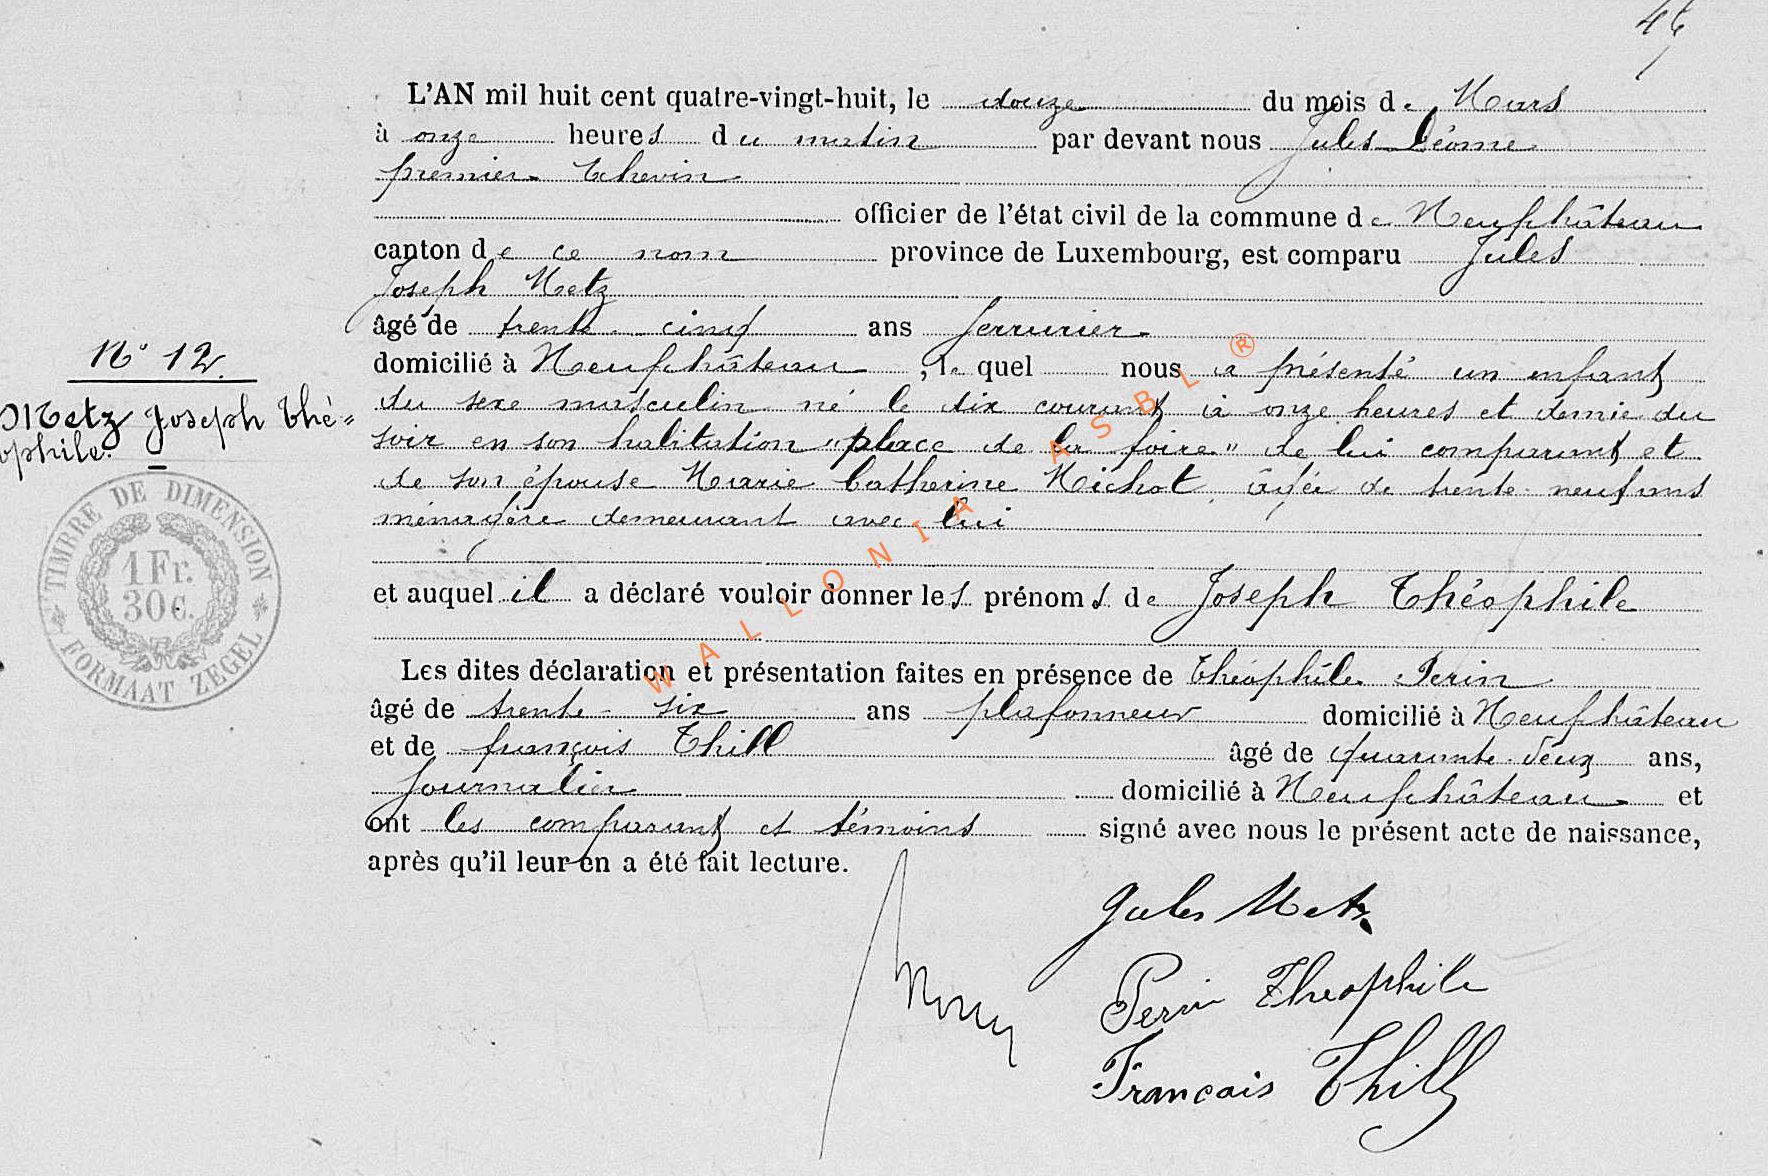 L'AN mil huit cent quatre-vingt-huit, le douze du mois de Mars
à onze heures du matin par devant nous Jules Léonne
premier Echevin
officier de l'état civil de la commune de Neufchâteau
canton de ce nom province de Luxembourg, est comparu Jules
Joseph Metz
âgé de trente-cinq ans serrurier
N° 12.
domicilié à Neufchâteau, le quel nous a présenté un enfant
Metz Joseph Thé=
ophile.
du sexe masculin né le dix courant à onze heures et demie du
soir en son habitation "place de la foire" de lui comparant et
de son épouse Marie Catherine Michot, âgée de trente-neuf ans
ménagère demeurant avec lui
TIMBRE DE DIMENSION
1 Fr.
30 c.
FORMAAT ZEGEL
et auquel il a déclaré vouloir donner les prénoms de Joseph Théophile
Les dites déclaration et présentation faites en présence de Théophile Perin
âgé de trente-six ans plafonneur domicilié à Neufchâteau
et de françois Thill âgé de quarante-deux ans,
Journalier domicilié à Neufchâteau et
ont les comparant et témoins signé avec nous le présent acte de naissance,
après qu'il leur en a été fait lecture.
Jules Metz
Perin Théophile
Francois Thill
WALLONIA ASBL ®